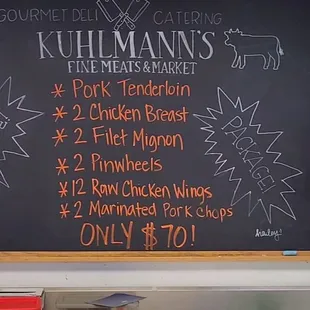 GOURMET DELI CATERING
KUHLMANN'S
FINE MEATS & MARKET
* Pork Tenderloin
* 2 Chicken Breast
* 2 Filet Mignon
* 2 Pinwheels
* 12 Raw Chicken Wings
* 2 Marinated Pork Chops
ONLY $70!
PACKAGE!